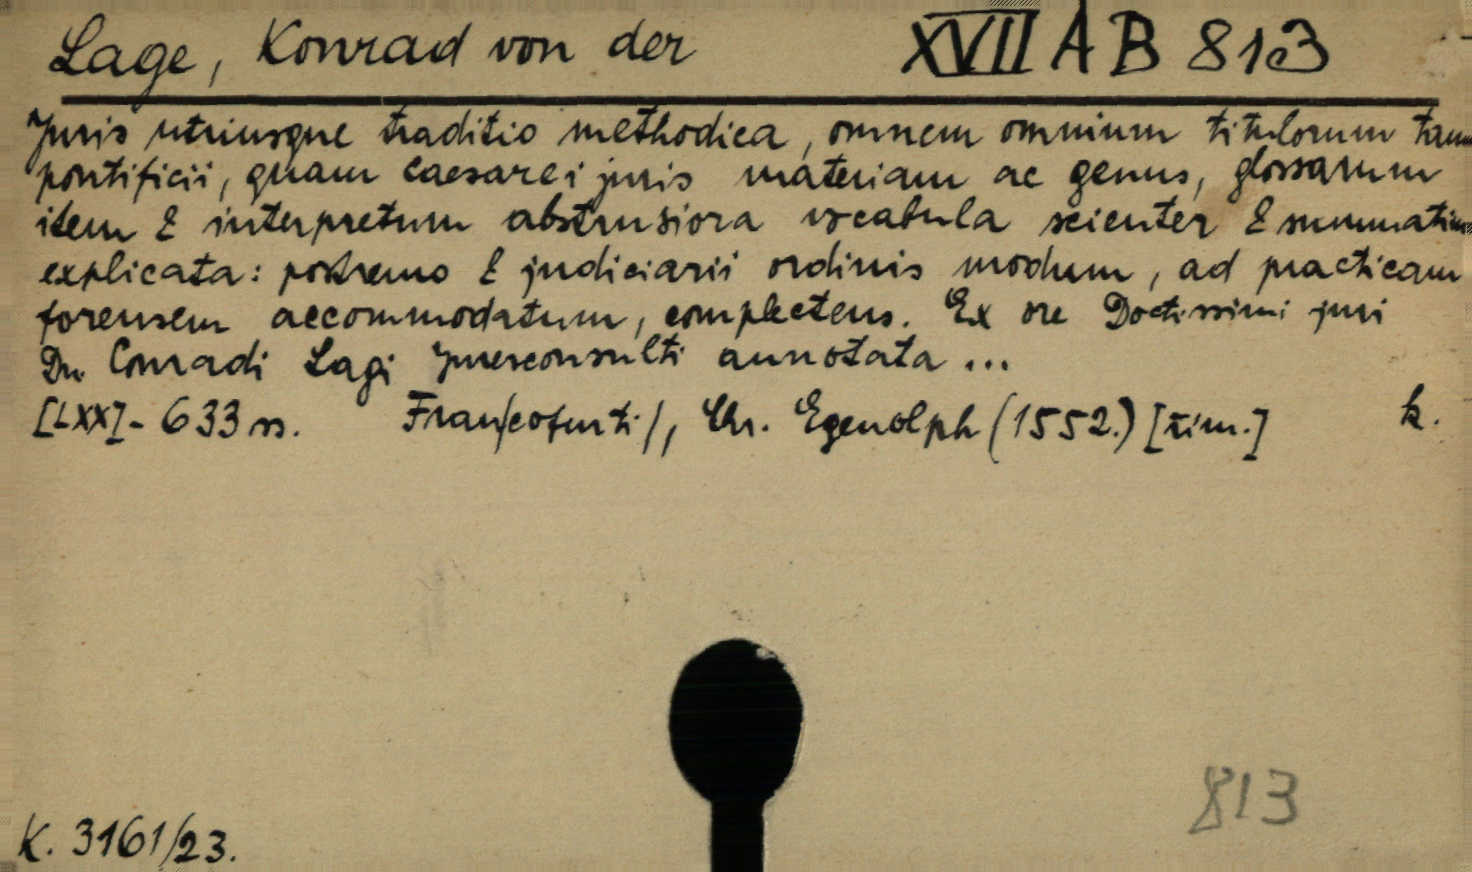 Lage, Konrad von der XVII A B 813
Juris utriusque traditio methodica, omnem omnium titulorum tam
pontificii, quam caesarei juris materiam ac genus, glossarum
item & interpretum abstrusiora vocabula scienter & summatim
explicata: postremo & judiciarii ordinis modum, ad practicam
forensem accommodatum, complectens. Ex ore Doctissimi juri
Dn Conradi Lagi Jureconsulti annotata ...
[LXX]- 633 ss. Fran/cofurti/, Chr. Egenolph (1552.) [řím.] k.
813
K. 3161/23.